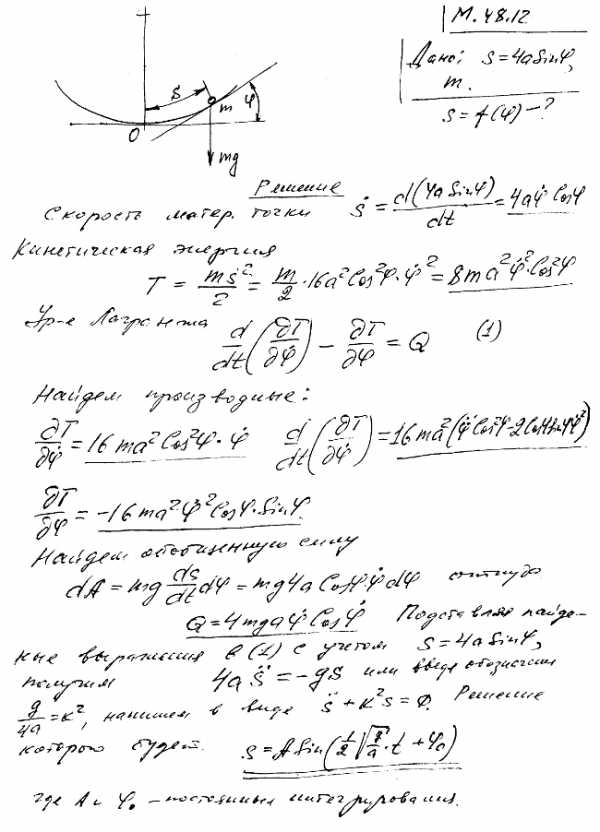 М.48.12
Дано: s=4a Sinφ,
m.
s=f(φ)-?
S
φ
m
O
mg
Решение
Скорость матер. точки ṡ = d(4a Sinφ)/dt = 4aφ̇ Cosφ
Кинетическая энергия
T = mṡ²/2 = m/2 · 16a² Cos²φ · φ̇² = 8ma²φ̇² · Cos²φ
Ур-е Лагранжа d/dt(∂T/∂φ̇) - ∂T/∂φ = Q (1)
Найдем производные:
∂T/∂φ̇ = 16ma² Cos²φ · φ̇ d/dt(∂T/∂φ̇) = 16ma²(φ̈ Cos²φ - 2Cosφ Sinφ φ̇²)
∂T/∂φ = -16ma²φ̇² Cosφ · Sinφ
Найдем обобщенную силу
dA = mg ds/dt dφ = mg4a Cosφ · φ̇ dφ откуда
Q = 4mgaφ̇ Cosφ Подставляя найде-
ные выражения в (1) с учетом s=4a Sinφ,
получим 4a s̈ = -gs или введя обозначения
g/4a = k², напишем в виде s̈ + k²s = 0. Решение
которого будет: s = A Sin(1/2 √(g/a) · t + φ₀)
где A и φ₀ - постоянные интегрирования.